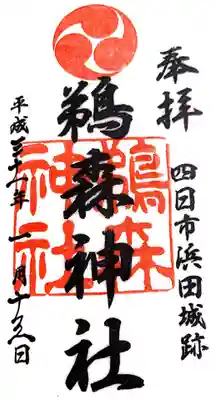 奉拝
四日市浜田城跡
鵜森神社
鵜森神社
平成三十一年一月十六日